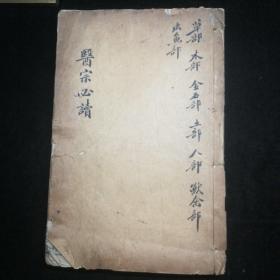 草部 木部 金石部 土部 人部 獸禽部
虫魚部
醫宗必讀